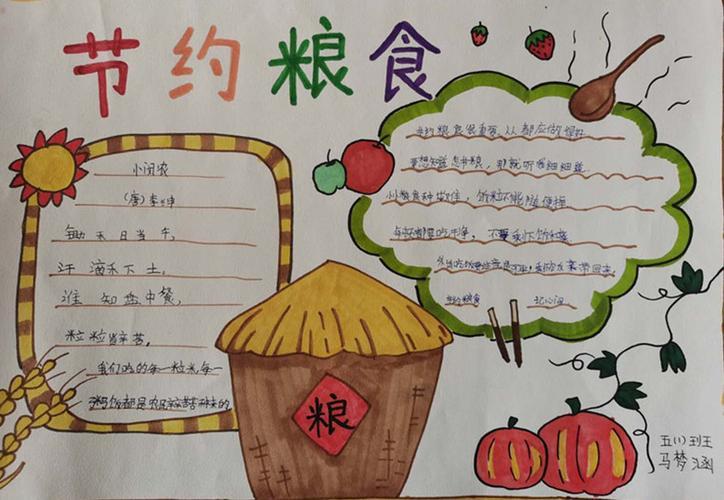 节约粮食
小闵农
(唐)李绅
锄禾日当午,
汗滴禾下土,
谁知盘中餐,
粒粒皆辛苦。
我们吃的每一粒米每一
粥饭都是农民辛苦种来的
节约粮食很重要,人人都应做得好
要想知道怎节粮,那就听我细细道
小小粮食种类佳,饭粒不能随便掉
节约粮食 记心间
粮
五(1)班王
马梦涵